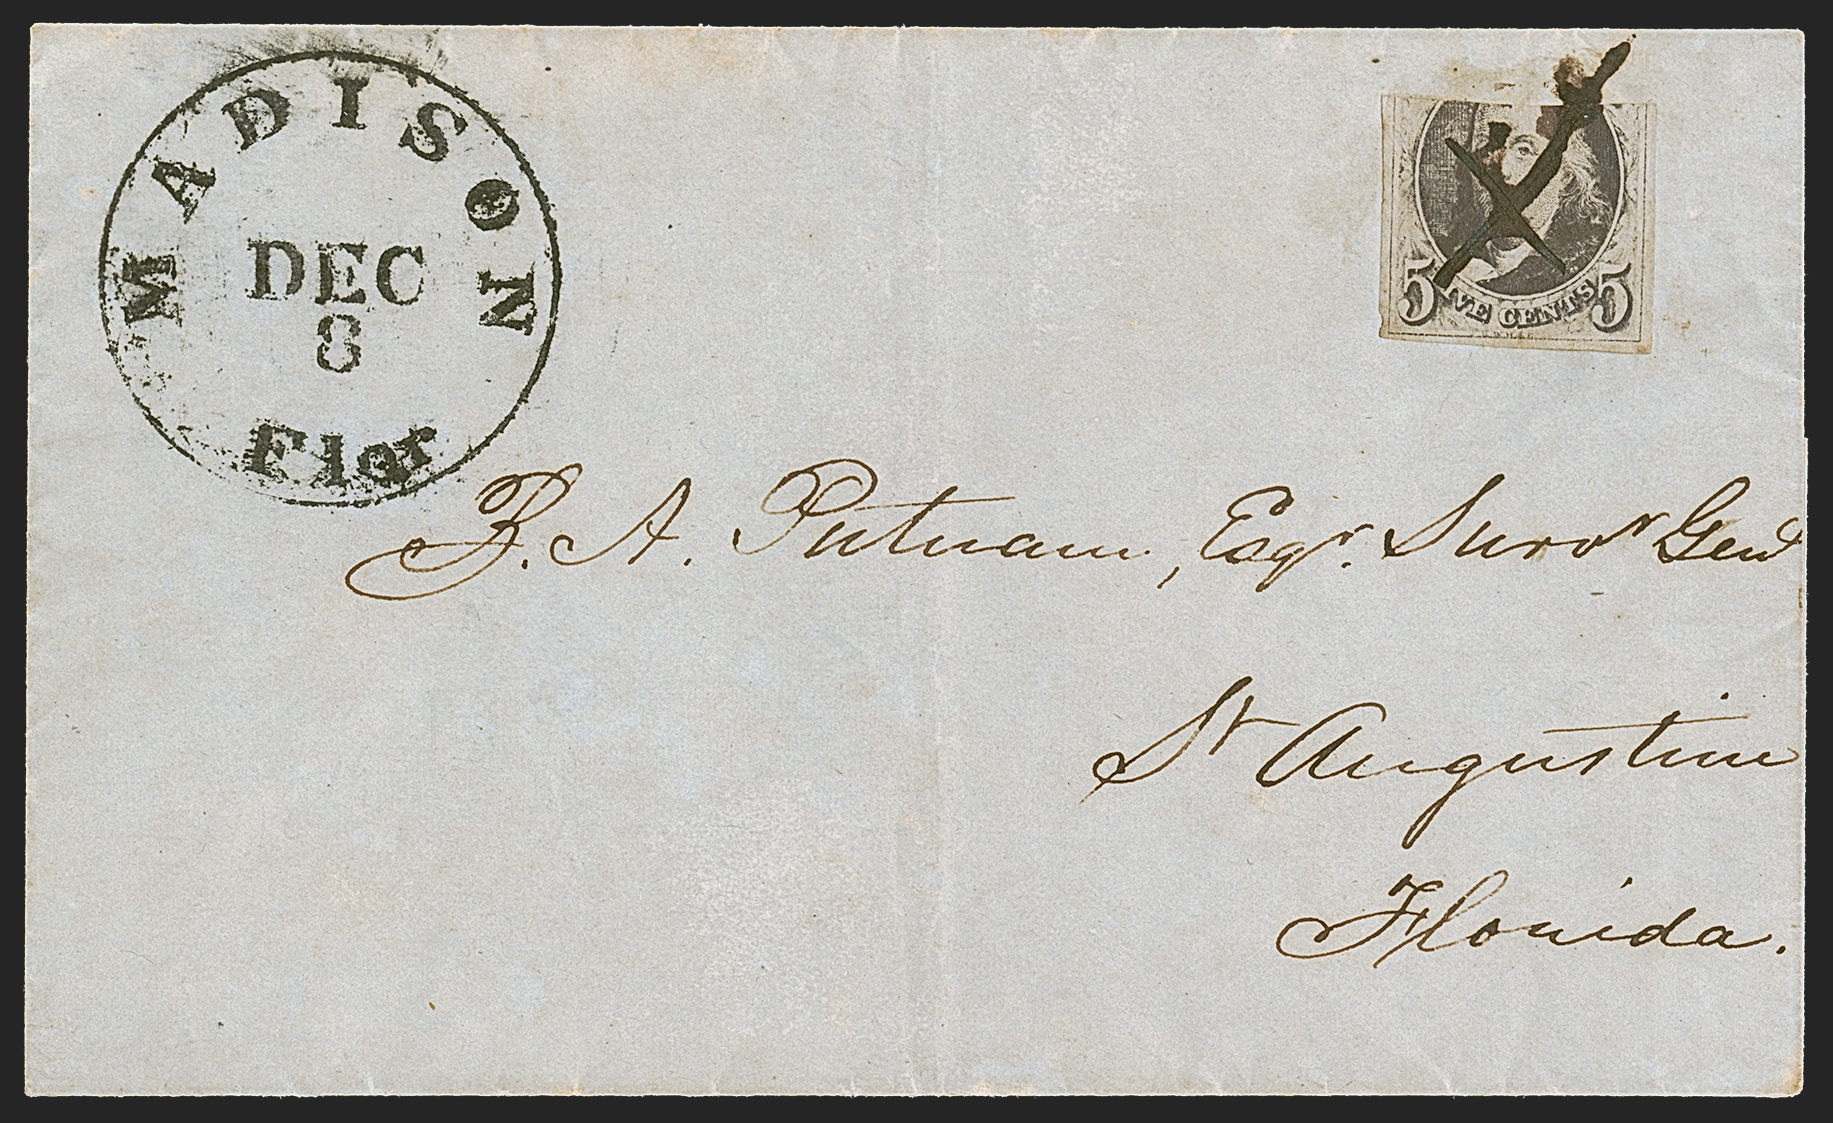 MADISON
DEC
8
Flor
5 VE CENTS 5
B. A. Putnam, Esqr. Survr Genl
St Augustine
Florida.